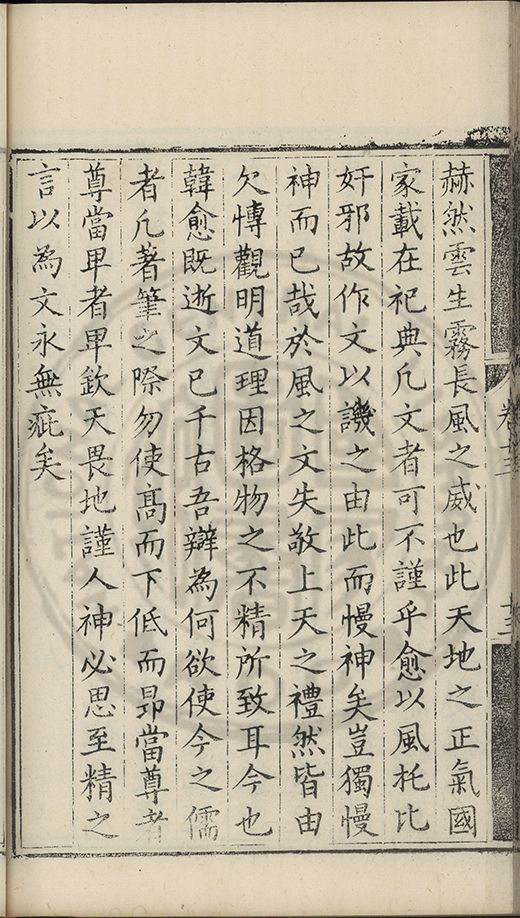 赫然雲生霧長風之威也此天地之正氣國
家載在祀典凡文者可不謹乎愈以風托比
奸邪故作文以譏之由此而慢神矣豈獨慢
神而已哉於風之文失敬上天之禮然皆由
欠愽觀明道理因格物之不精所致耳今也
韓愈既逝文已千古吾辯為何欲使今之儒
者凡著筆之際勿使髙而下低而昻當尊者
尊當卑者卑欽天畏地謹人神必思至精之
言以為文永無疵矣